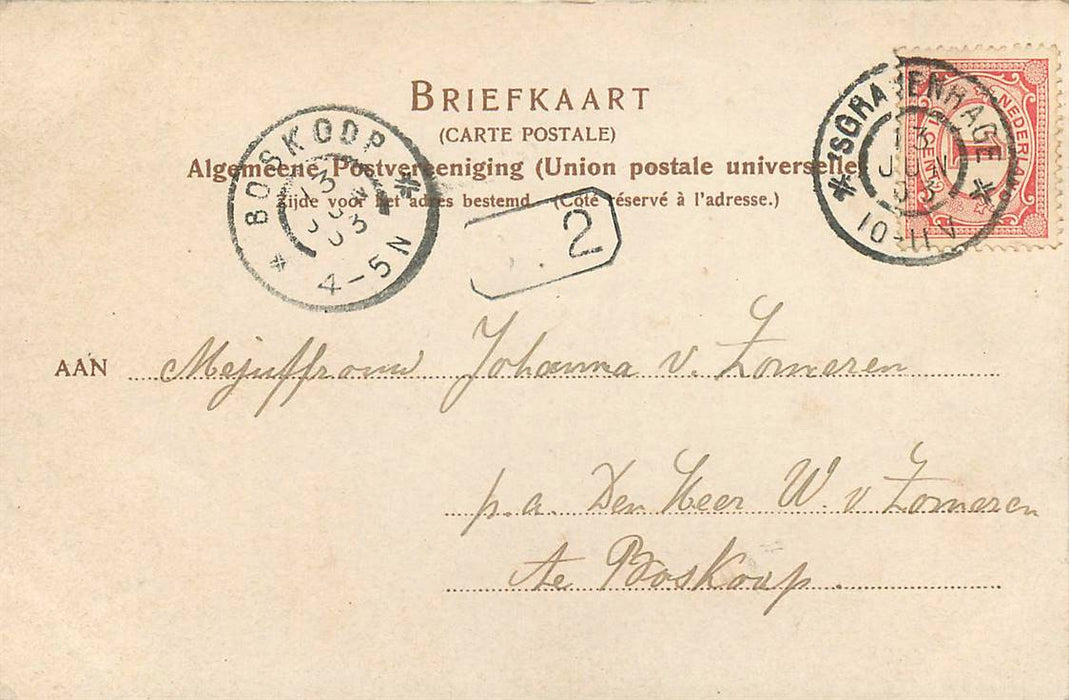 BRIEFKAART
(CARTE POSTALE)
Algemeene Postvereeniging (Union postale universelle)
Zijde voor het adres bestemd. (Côté réservé à l'adresse.)
BOSKOOP
13 JUN 03
4-5N
2
'SGRAVENHAGE
13 JUN 03
10-11 A
NEDERLAND
1
CENT
AAN Mejuffrouw Johanna v. Zomeren
p.a. Den Heer W. v Zomeren
te Boskoop.